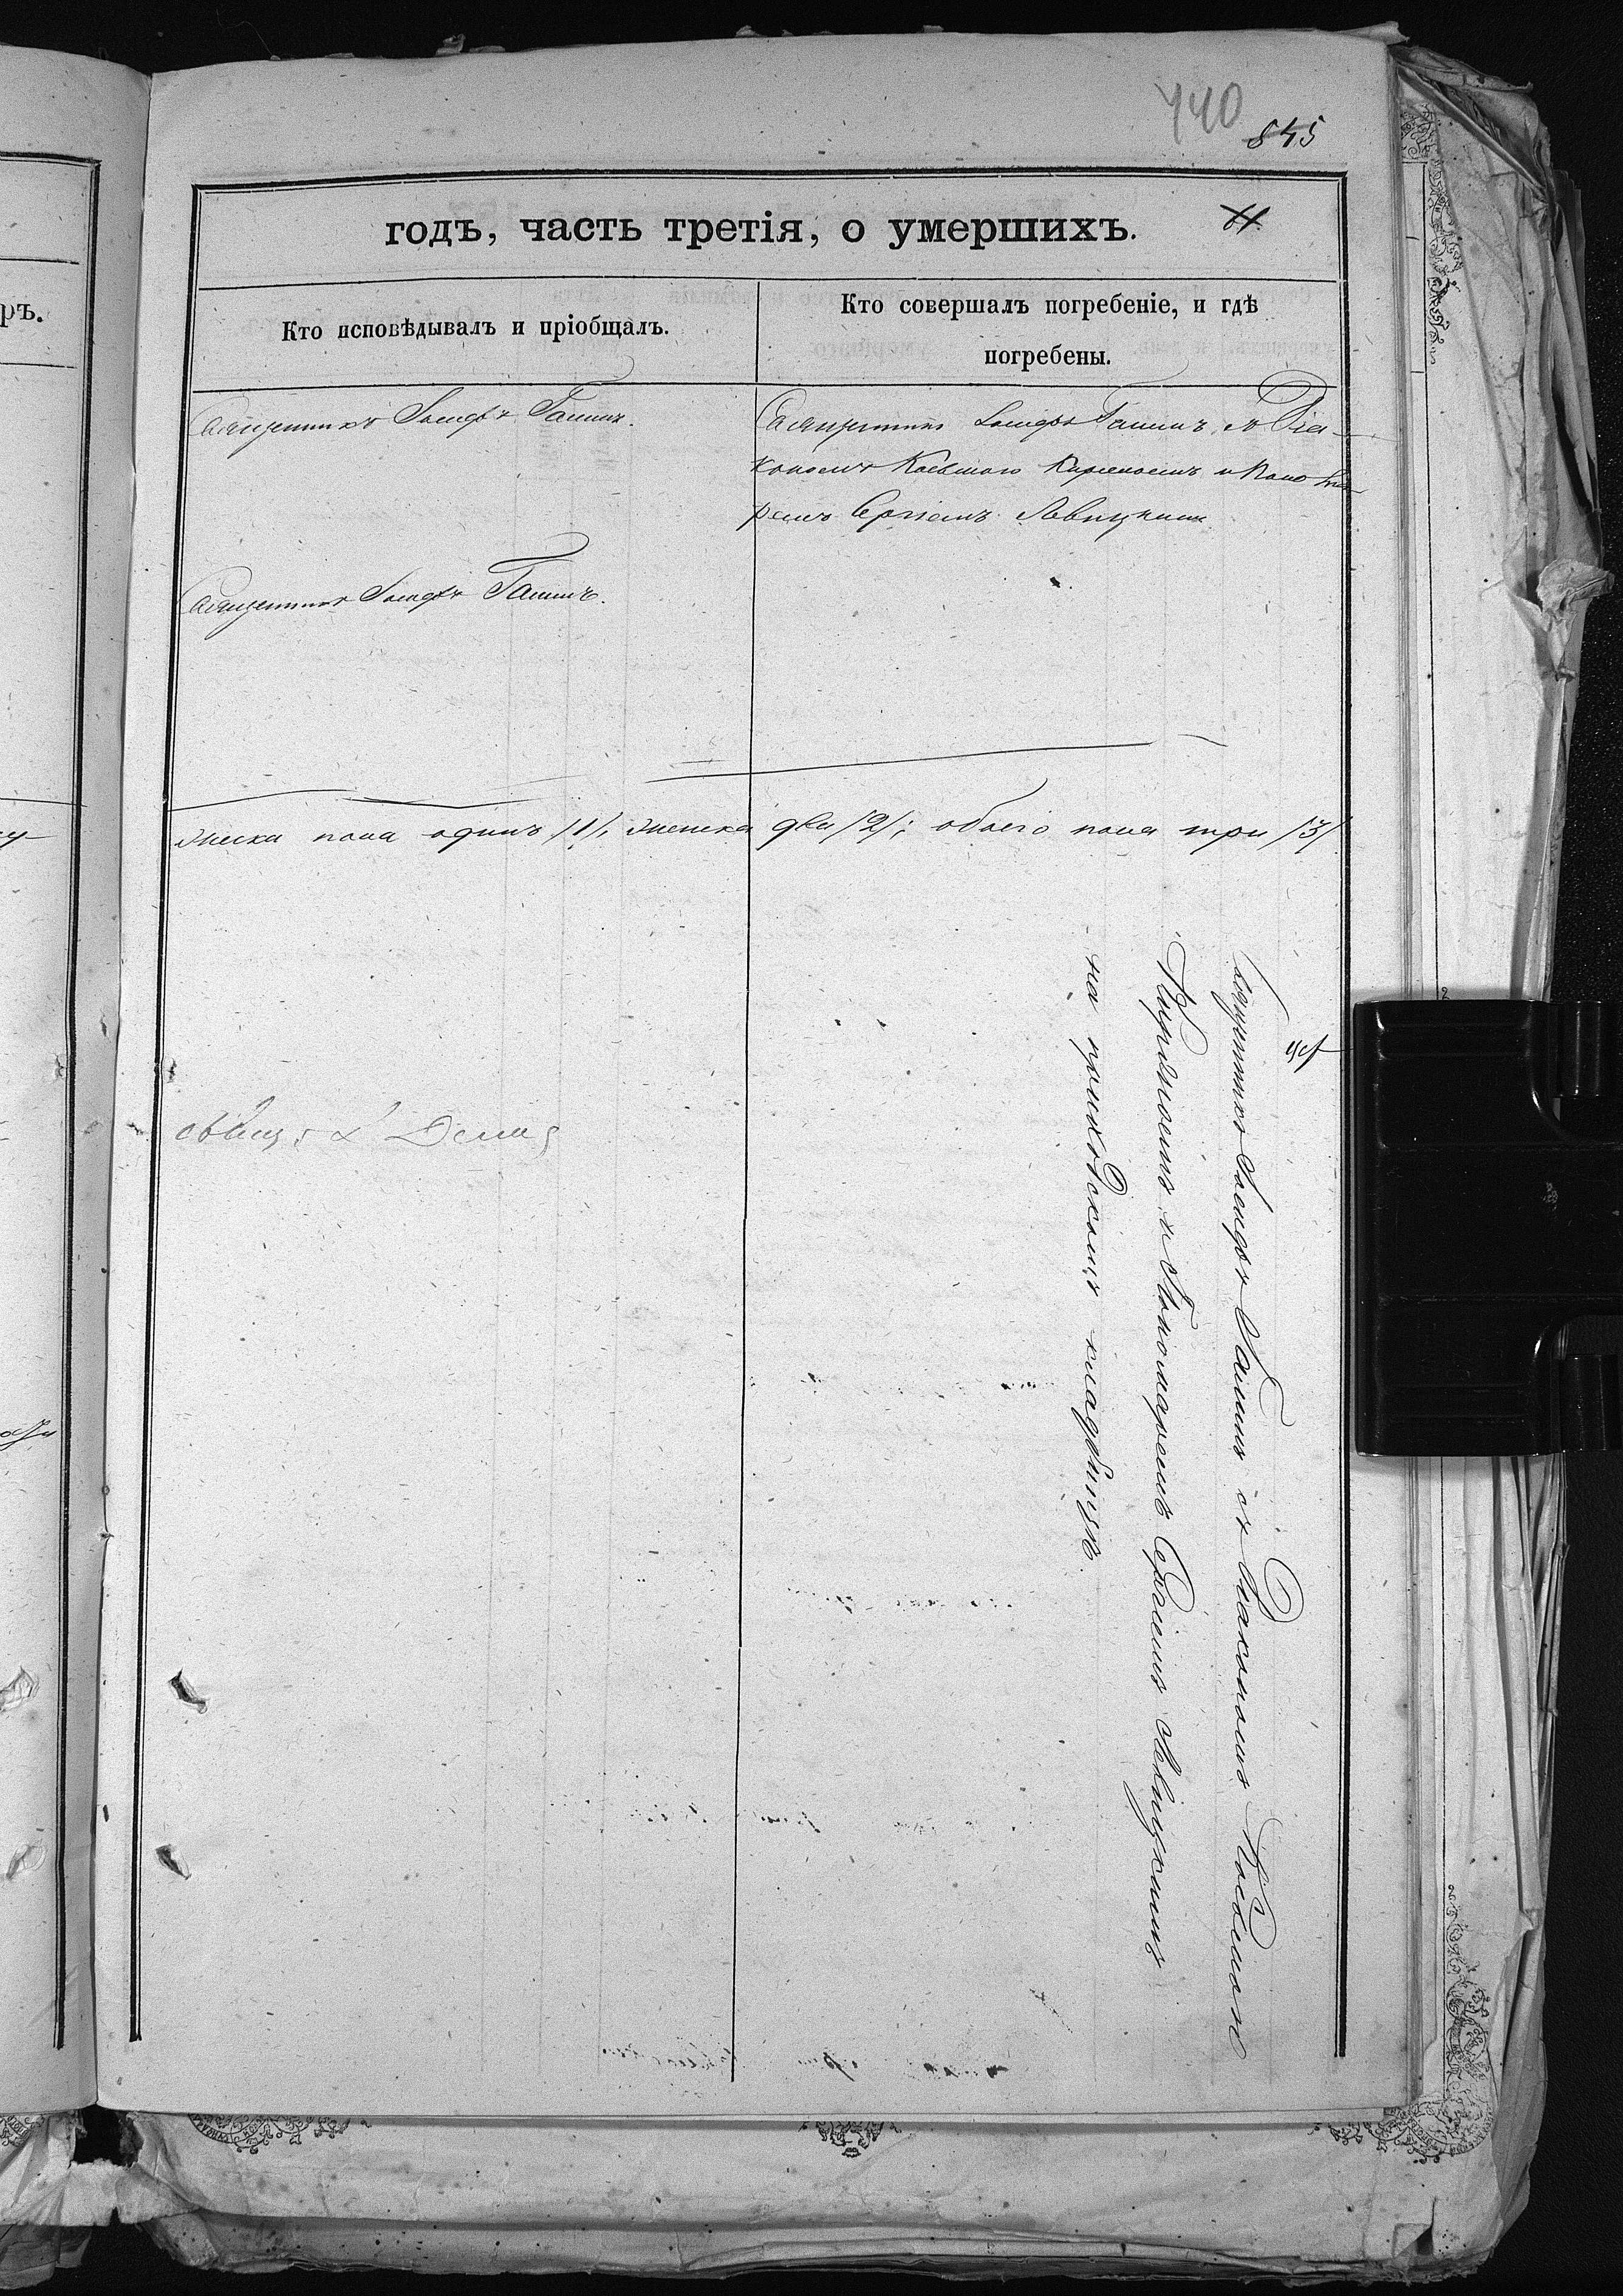 440
845
годъ, часть третія, о умершихъ.
Кто исповѣдывалъ и пріобщалъ.
Кто совершалъ погребеніе, и гдѣ
погребены.
Священникъ Іосифъ Ганинъ.
Священникъ Іосифъ Ганинъ съ Діа-
кономъ Космою Кириловымъ и Поно ма-
ремъ Сергіемъ Левицкимъ
Священникъ Іосифъ Ганинъ.
мужеска пола одинъ /1/, женска два /2/; обоего пола три /3/
Священникъ Іосифъ Ганинъ съ Діакономъ Космою
Кириловымъ и Пономаремъ Сергіемъ Левицкимъ
на приходскомъ кладбищѣ.
ръ.